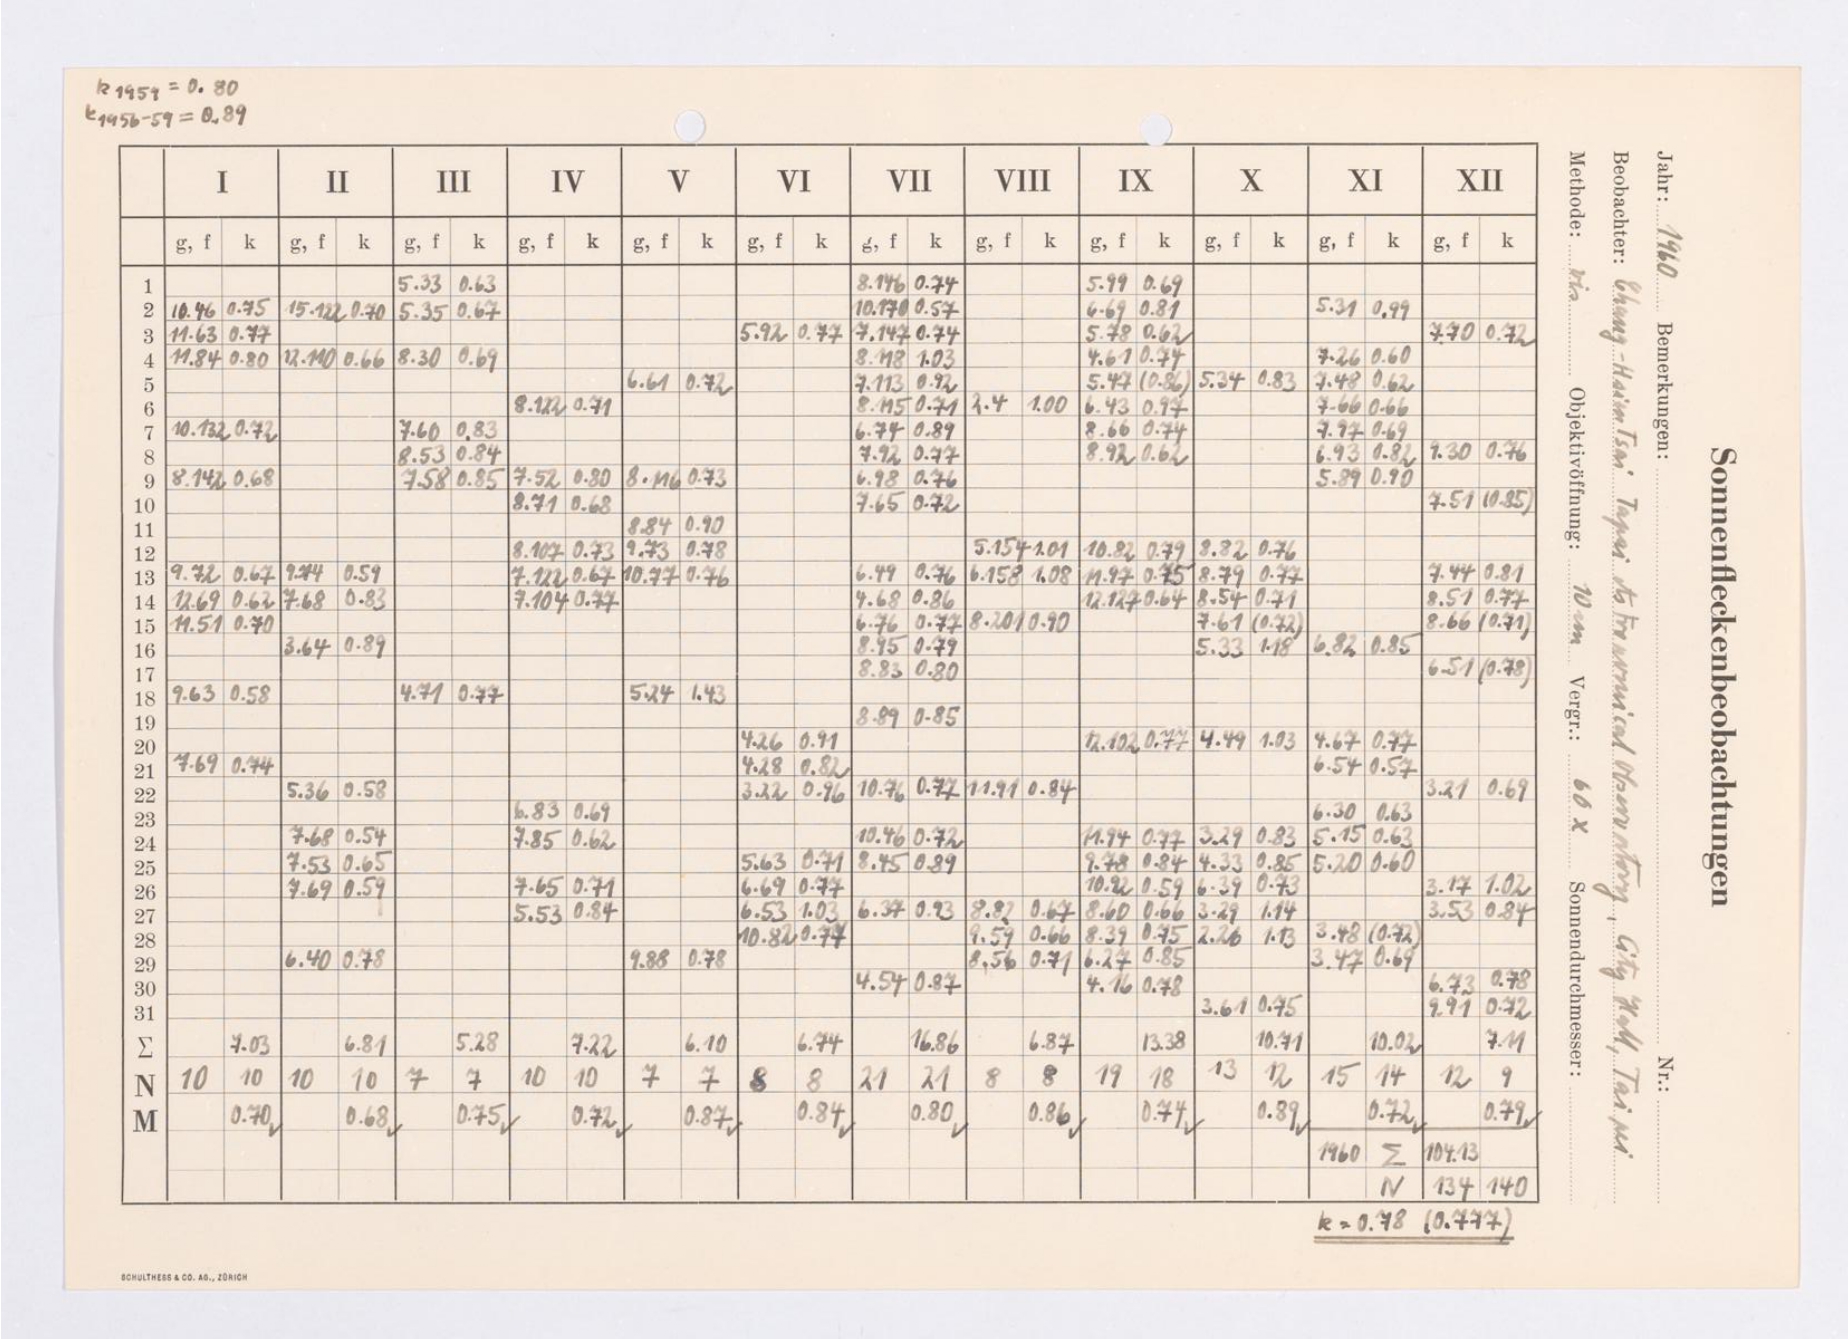 k 1959 = 0.80
k 1956-59 = 0.89
Sonnenfleckenbeobachtungen
Jahr: 1960 Bemerkungen: Nr.:
Beobachter: Tsai Taipei Astronomical Observatory, City Hall, Taipei
Methode: vis. Objektivöffnung: 10 cm Vergr.: 60 x Sonnendurchmesser:
I II III IV V VI VII VIII IX X XI XII
g, f k g, f k g, f k g, f k g, f k g, f k g, f k g, f k g, f k g, f k g, f k g, f k
1 5.33 0.63 8.146 0.74 5.99 0.69
2 10.46 0.75 15.122 0.70 5.35 0.67 10.170 0.57 6.69 0.81 5.31 0.99
3 11.63 0.77 5.92 0.77 7.147 0.74 5.78 0.62 7.70 0.72
4 11.84 0.80 12.110 0.66 8.30 0.69 8.118 1.03 4.61 0.74 7.26 0.60
5 6.61 0.72 7.113 0.92 5.47 (0.86) 5.34 0.83 7.48 0.62
6 8.122 0.71 8.115 0.71 2.4 1.00 6.43 0.97 7.66 0.66
7 10.132 0.72 7.60 0.83 6.74 0.89 8.66 0.74 7.97 0.69
8 8.53 0.84 7.92 0.77 8.92 0.62 6.93 0.82 9.30 0.76
9 8.142 0.68 7.58 0.85 7.52 0.80 8.116 0.73 6.98 0.76 5.89 0.90
10 8.71 0.68 7.65 0.72 7.51 (0.85)
11 8.84 0.90
12 8.107 0.73 9.73 0.78 5.154 1.01 10.82 0.79 8.82 0.76
13 9.72 0.67 9.74 0.59 7.122 0.67 10.77 0.76 6.49 0.76 6.158 1.08 11.97 0.75 8.79 0.77 7.44 0.81
14 12.69 0.62 7.68 0.83 7.104 0.77 4.68 0.86 12.127 0.64 8.54 0.71 8.51 0.77
15 11.51 0.70 6.76 0.77 8.201 0.90 7.61 (0.72) 8.66 (0.71)
16 3.64 0.89 8.95 0.79 5.33 1.18 6.82 0.85
17 8.83 0.80 6.51 (0.78)
18 9.63 0.58 4.71 0.77 5.24 1.43
19 8.89 0.85
20 4.26 0.91 12.102 0.77 4.49 1.03 4.67 0.77
21 7.69 0.74 4.28 0.82 6.54 0.57
22 5.36 0.58 3.22 0.96 10.76 0.77 11.91 0.84 3.21 0.69
23 6.83 0.69 6.30 0.63
24 7.68 0.54 7.85 0.62 10.46 0.72 11.94 0.77 3.29 0.83 5.15 0.63
25 7.53 0.65 5.63 0.71 8.45 0.89 9.78 0.84 4.33 0.85 5.20 0.60
26 7.69 0.59 7.65 0.71 6.69 0.77 10.92 0.59 6.39 0.73 3.17 1.02
27 5.53 0.84 6.53 1.03 6.37 0.93 8.82 0.67 8.60 0.66 3.29 1.14 3.53 0.84
28 10.82 0.77 9.59 0.66 8.39 0.75 2.26 1.13 3.48 (0.72)
29 6.40 0.78 9.88 0.78 8.56 0.71 6.27 0.85 3.47 0.69
30 4.54 0.87 4.16 0.78 6.73 0.78
31 3.61 0.75 9.91 0.72
Σ 7.03 6.81 5.28 7.22 6.10 6.74 16.86 6.87 13.38 10.71 10.02 7.11
N 10 10 10 10 7 7 10 10 7 7 8 8 21 21 8 8 19 18 13 12 15 14 12 9
M 0.70 0.68 0.75 0.72 0.87 0.84 0.80 0.86 0.74 0.89 0.72 0.79
1960 Σ 104.13
N 134 140
k = 0.78 (0.777)
SCHULTHESS & CO. AG., ZÜRICH